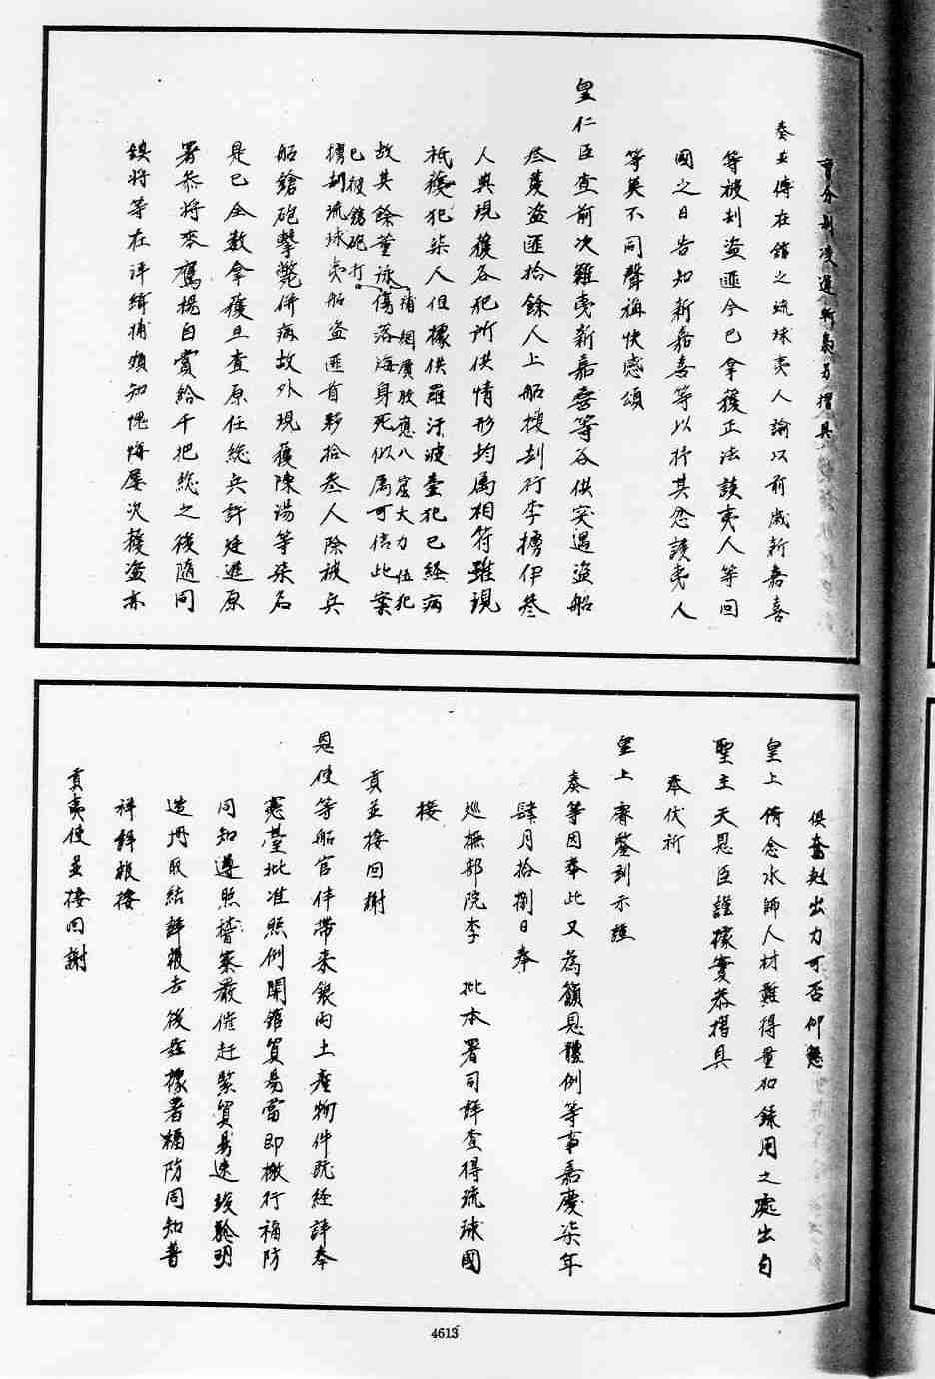 奏並傳在館之琉球夷人諭以前歲新嘉喜
等被刦盜匪今已拿獲正法該夷人等回
國之日告知新嘉喜等以抒其忿該夷人
等莫不同聲稱快感頌
皇仁臣查前次難夷新嘉喜等各供突遇盜船
盡夢盜匪拾餘人上船搜刦行李擄伊叁
人與現獲各犯所供情形均屬相符雖現
祗獲犯柒人但據供羅汙波壹犯已經病
故其餘董泳傷落海身死似屬可信此案
已被鎗砲打
補網廣放應八窟大力伍犯
擄刦琉球夷船盜匪首夥拾叁人除被兵
船鎗砲擊斃併病故外現獲陳湯等柒名
是已全數拿獲且查原任總兵許廷進原
署叅將麥鷹揚自賞給千把總之後隨同
鎮將等在洋緝捕頗知愧悔屢次獲盜亦
俱奮勉出力可否仰懇
皇上倚念水師人材難得量加錄用之處出自
聖主天恩臣謹據實恭摺具
奏伏祈
皇上睿鑒訓示謹
奏等因奉此又為籲恩體例等事嘉慶柒年
肆月拾捌日奉
巡撫部院李 批本署司詳查得琉球國
接
貢並接回謝
恩使等船官伴帶来銀両土產物件既經詳奉
憲臺批准照例開館貿易當即檄行福防
同知遵照稽察嚴催赶緊貿易速竣騐明
造冊取結詳報去後茲據署福防同知普
祥詳報接
貢夷使並接回謝
4613